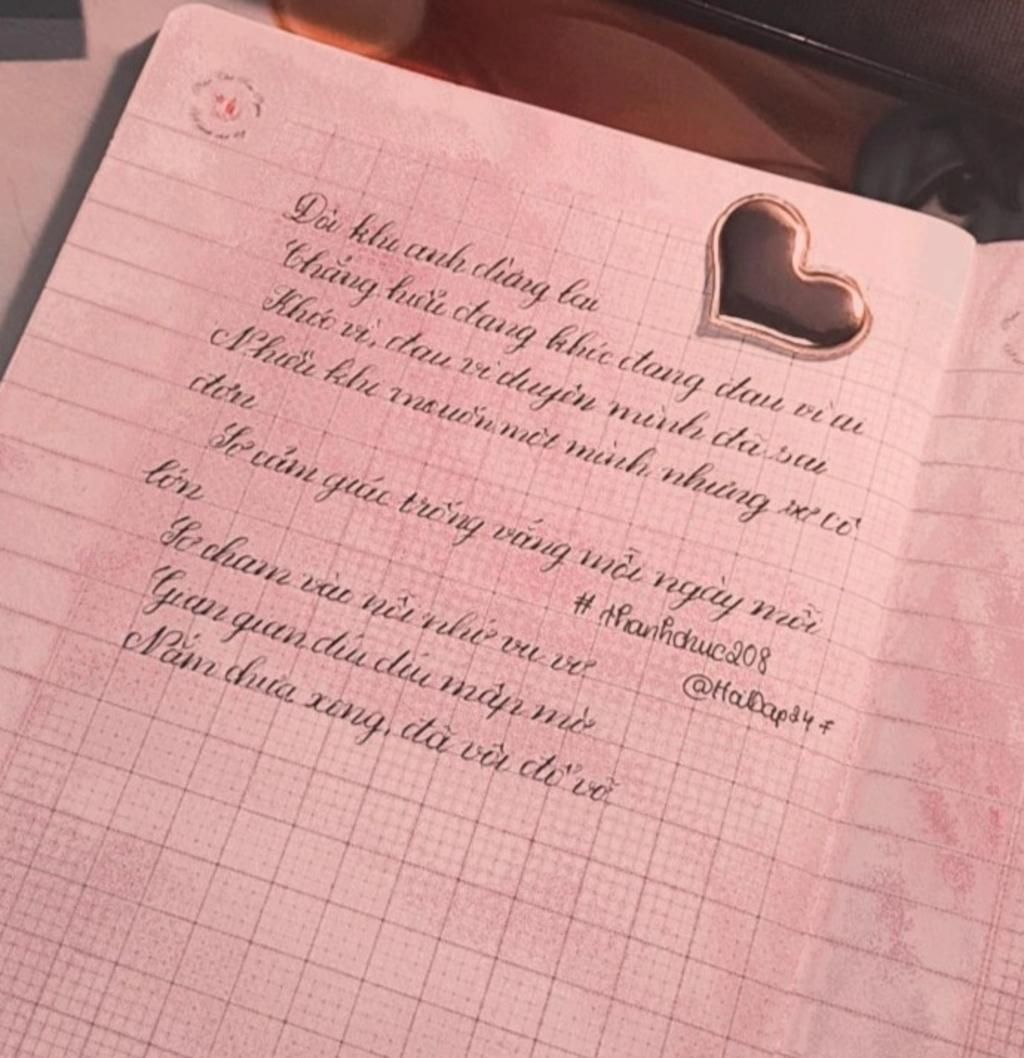 Đôi khi anh dừng lại
Chẳng hiểu đang khóc đang đau vì ai
Khóc vì, đau vì duyên mình đã sai
Nhiều khi muốn một mình nhưng sợ cô
đơn
Sợ cảm giác trống vắng mỗi ngày mỗi
lớn
Sợ chạm vào nỗi nhớ vu vơ
Gian gian díu díu mập mờ
Nắm chưa xong, đã vội đổ vỡ
# thanhchuc208
@HoiDap247